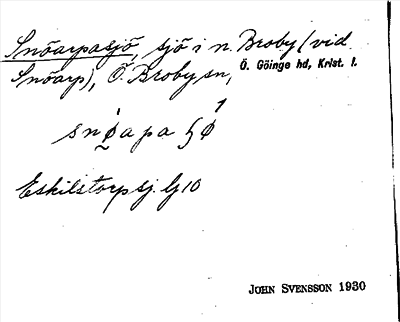 Snöarpasjö, sjö i n. Broby (vid
Snöarp), Ö. Broby sn, Ö. Göinge hd, Krist. l.
snø̀apa ʃø¹
Eskilstorpsj. G10
JOHN SVENSSON 1930